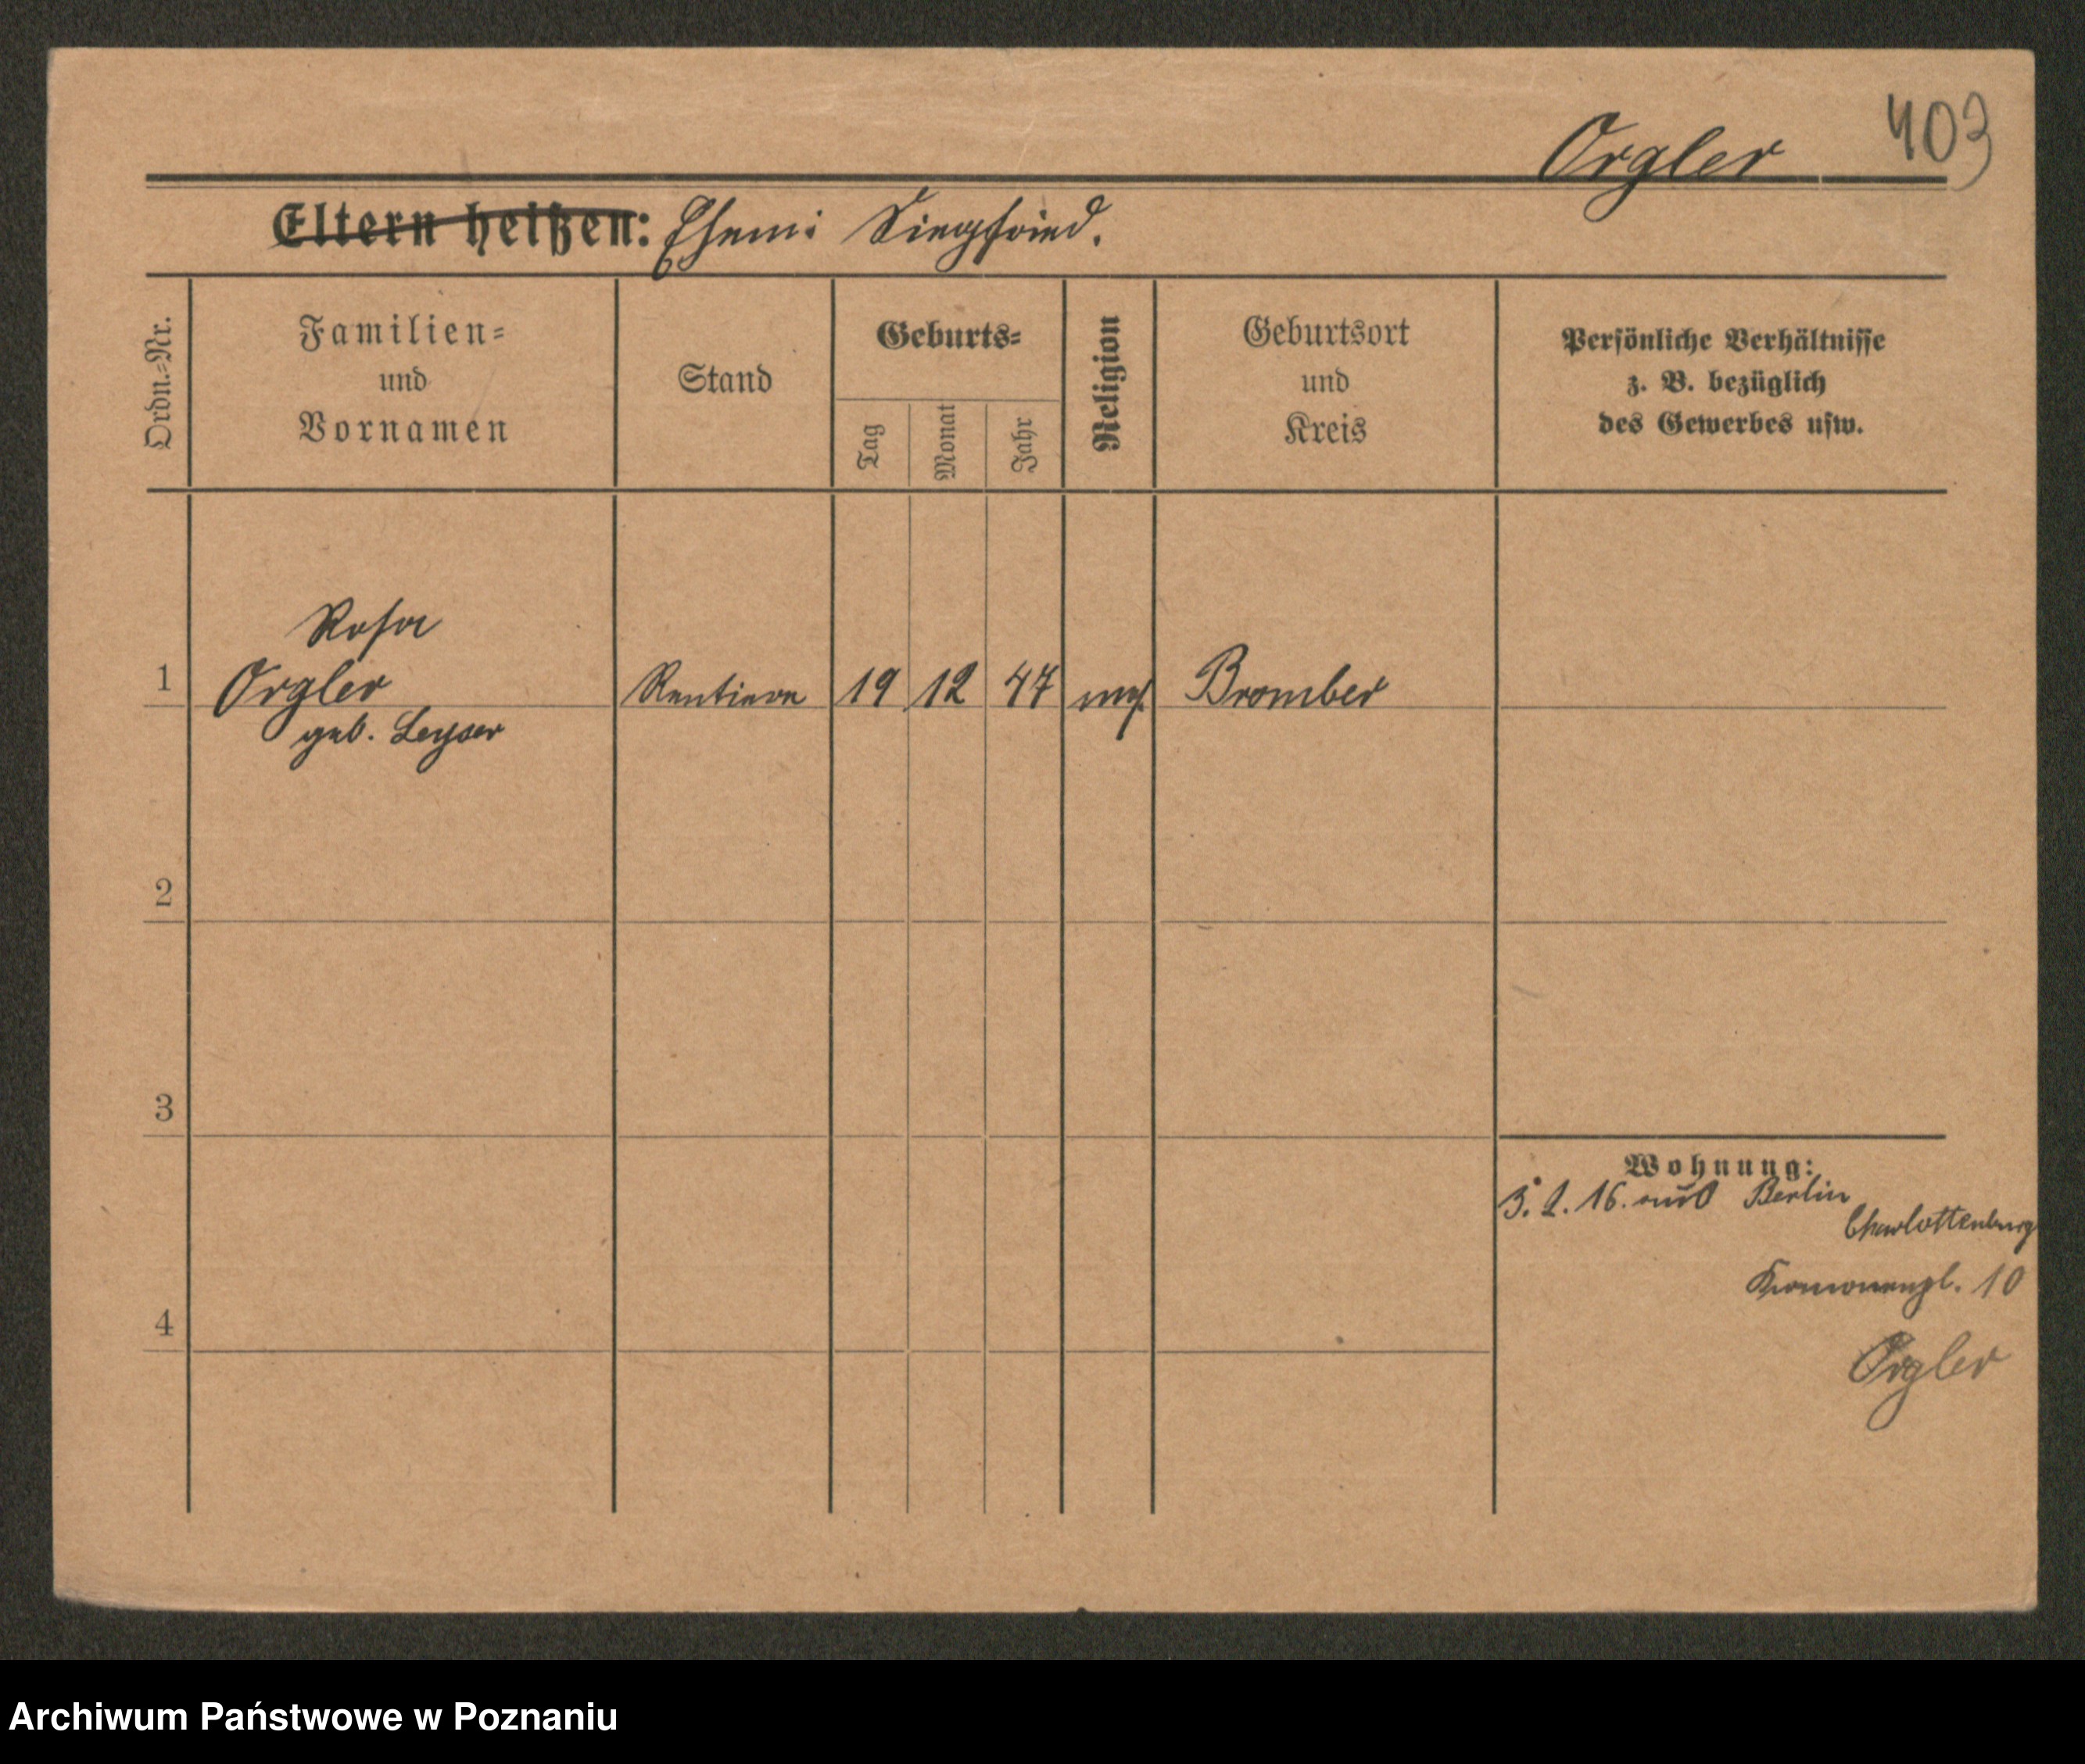 Orgler 403
Eltern heißen: Ehem: Siegfried.
Ordn.-Nr.
Familien-
und
Vornamen
Stand
Geburts-
Tag
Monat
Jahr
Religion
Geburtsort
und
Kreis
Persönliche Verhältnisse
z. B. bezüglich
des Gewerbes usw.
Rosa
1 Orgler Rentiere 19 12 47 mos. Bromber
geb. Leyser
2
3
4
Wohnung:
3. 2. 16. Berlin
Charlottenburg
10
Orgler
Archiwum Państwowe w Poznaniu